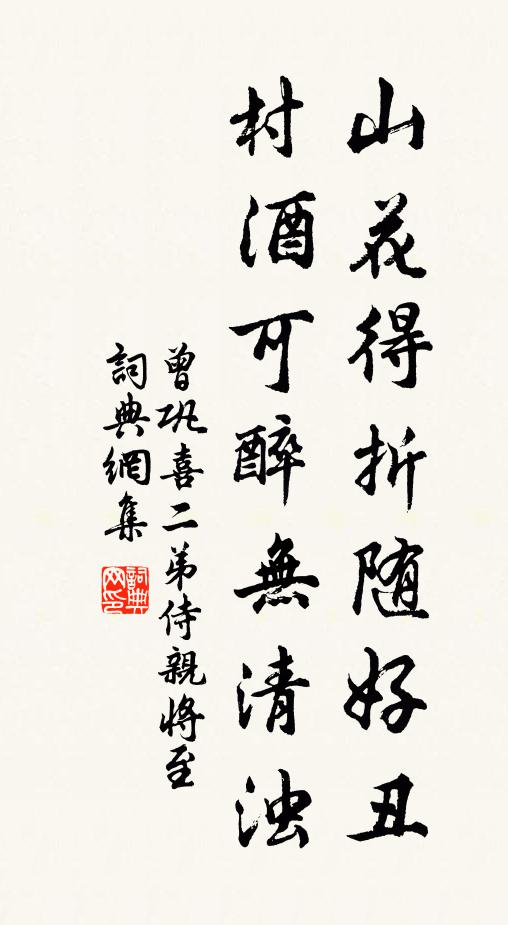 山花得折随好丑
村酒可醉無清浊
曾巩喜二弟侍親將至
詞典網集
詞典网印